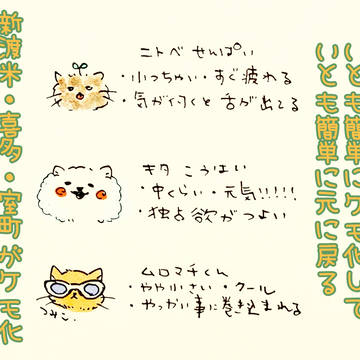 いとも簡単にケモ化して
いとも簡単に元に戻る
ニトベ せんぱい
・小っちゃい・すぐ疲れる
・気が付くと舌が出てる
キタ こうはい
・中くらい・元気!!!!!
・独占欲がつよい
ムロマチくん
・やや小さい・クール
・やっかい事に巻き込まれる
つみこ
新渡米・喜多・室町がケモ化